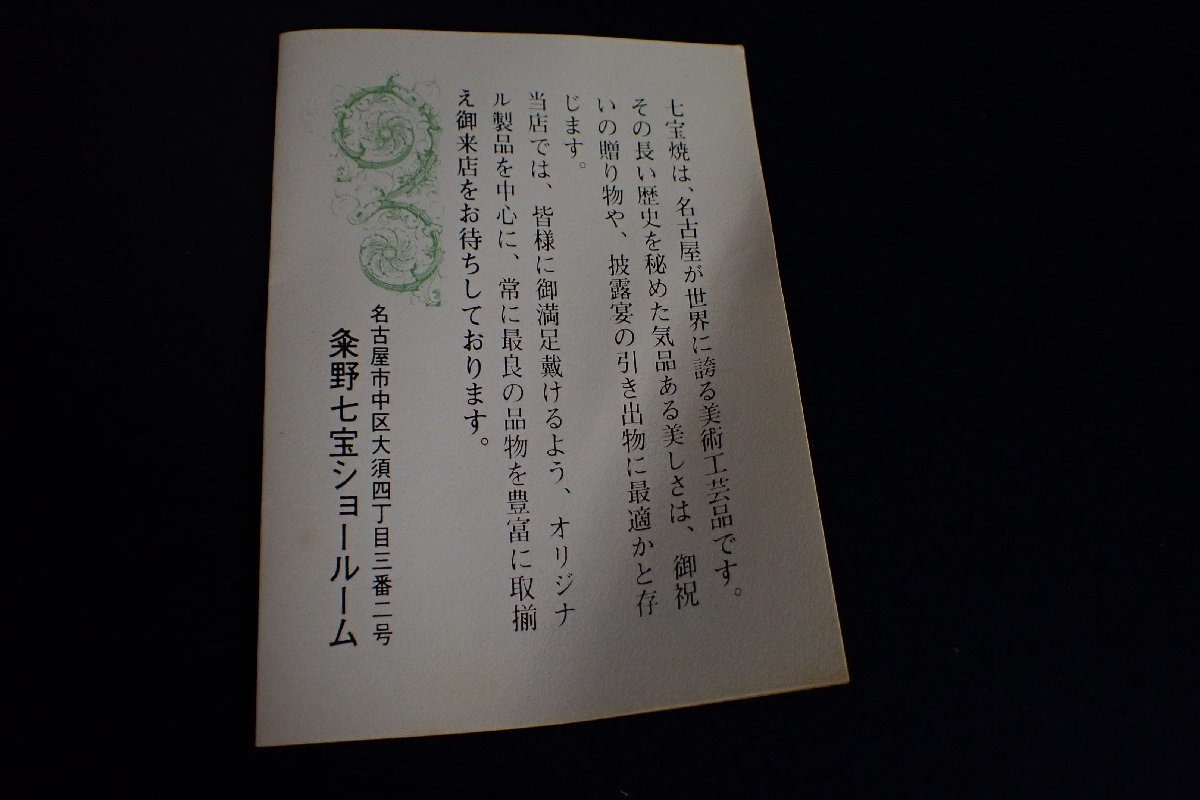 七宝焼は、名古屋が世界に誇る美術工芸品です。
その長い歴史を秘めた気品ある美しさは、御祝
いの贈り物や、披露宴の引き出物に最適かと存
じます。
当店では、皆様に御満足戴けるよう、オリジナ
ル製品を中心に、常に最良の品物を豊富に取揃
え御来店をお待ちしております。
名古屋市中区大須四丁目三番二号
粂野七宝ショールーム